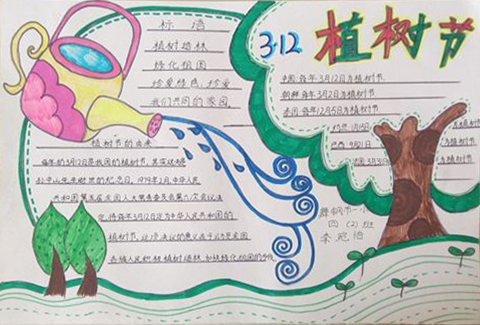 3·12
植树节
标语
植树造林
绿化祖国
珍爱绿色，珍爱
我们共同的家园
中国：每年3月12日为植树节
朝鲜：每年3月2日为植树节
泰国：每年12月5日为植树节
约旦：1月15日
巴西：9月21日
为植树节
植树节的由来
每年的3月12日是我国的植树节，其实这
孙中山先生逝世的纪念日，1979年2月中华人民
共和国第五届全国人大常委会第六次会议决
定，将每年3月12日定为中华人民共和国的
植树节，这项决议的意义在于动员全国
各族人民积极植树造林，加快绿化祖国的步伐
舞钢市一小
四（2）班
李